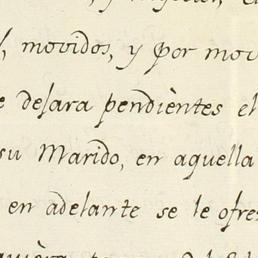 movidos, y por mov
dejara pendientes el
su Marido, en aquella
en adelante se le ofre